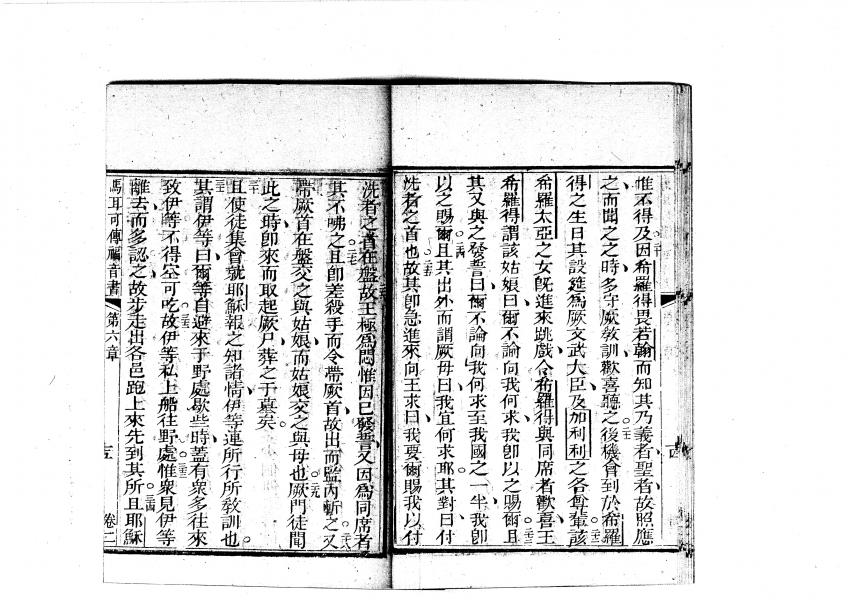 惟不得及因希羅得畏若翰而知其乃義者聖者故照應
之而聞之之時多守厥教訓歡喜聽之後機會到於希羅
得之生日其設筵爲厥文武大臣及加利利之各尊輩該
希羅太亞之女旣進來跳戲令希羅得與同席者歡喜王
希羅得謂該姑娘曰爾不論向我何求我卽以之賜爾且
其又與之發誓曰爾不論向我何求至我國之一半我卽
以之賜爾且其出外而謂厥母曰我宜何求耶其對曰付
洗者之首也故其卽急進來向王求曰我要爾賜我以付
洗者之首在盤故王極爲悶惟因已發誓又因爲同席者
其不咈之且卽差殺手而令帶厥首故出而監內斬之又
帶厥首在盤交之與姑娘而姑娘交之與母也厥門徒聞
此之時卽來而取起厥尸葬之于墓矣
且使徒集會就耶穌報之知諸情伊等連所行所教訓也
其謂伊等曰爾等自避來于野處歇些時蓋有衆多往來
致伊等不得空可吃故伊等私上船往野處惟衆見伊等
離去而多認之故步走出各邑跑上來先到其所且耶穌
馬耳可傳福音書 第六章 卷二